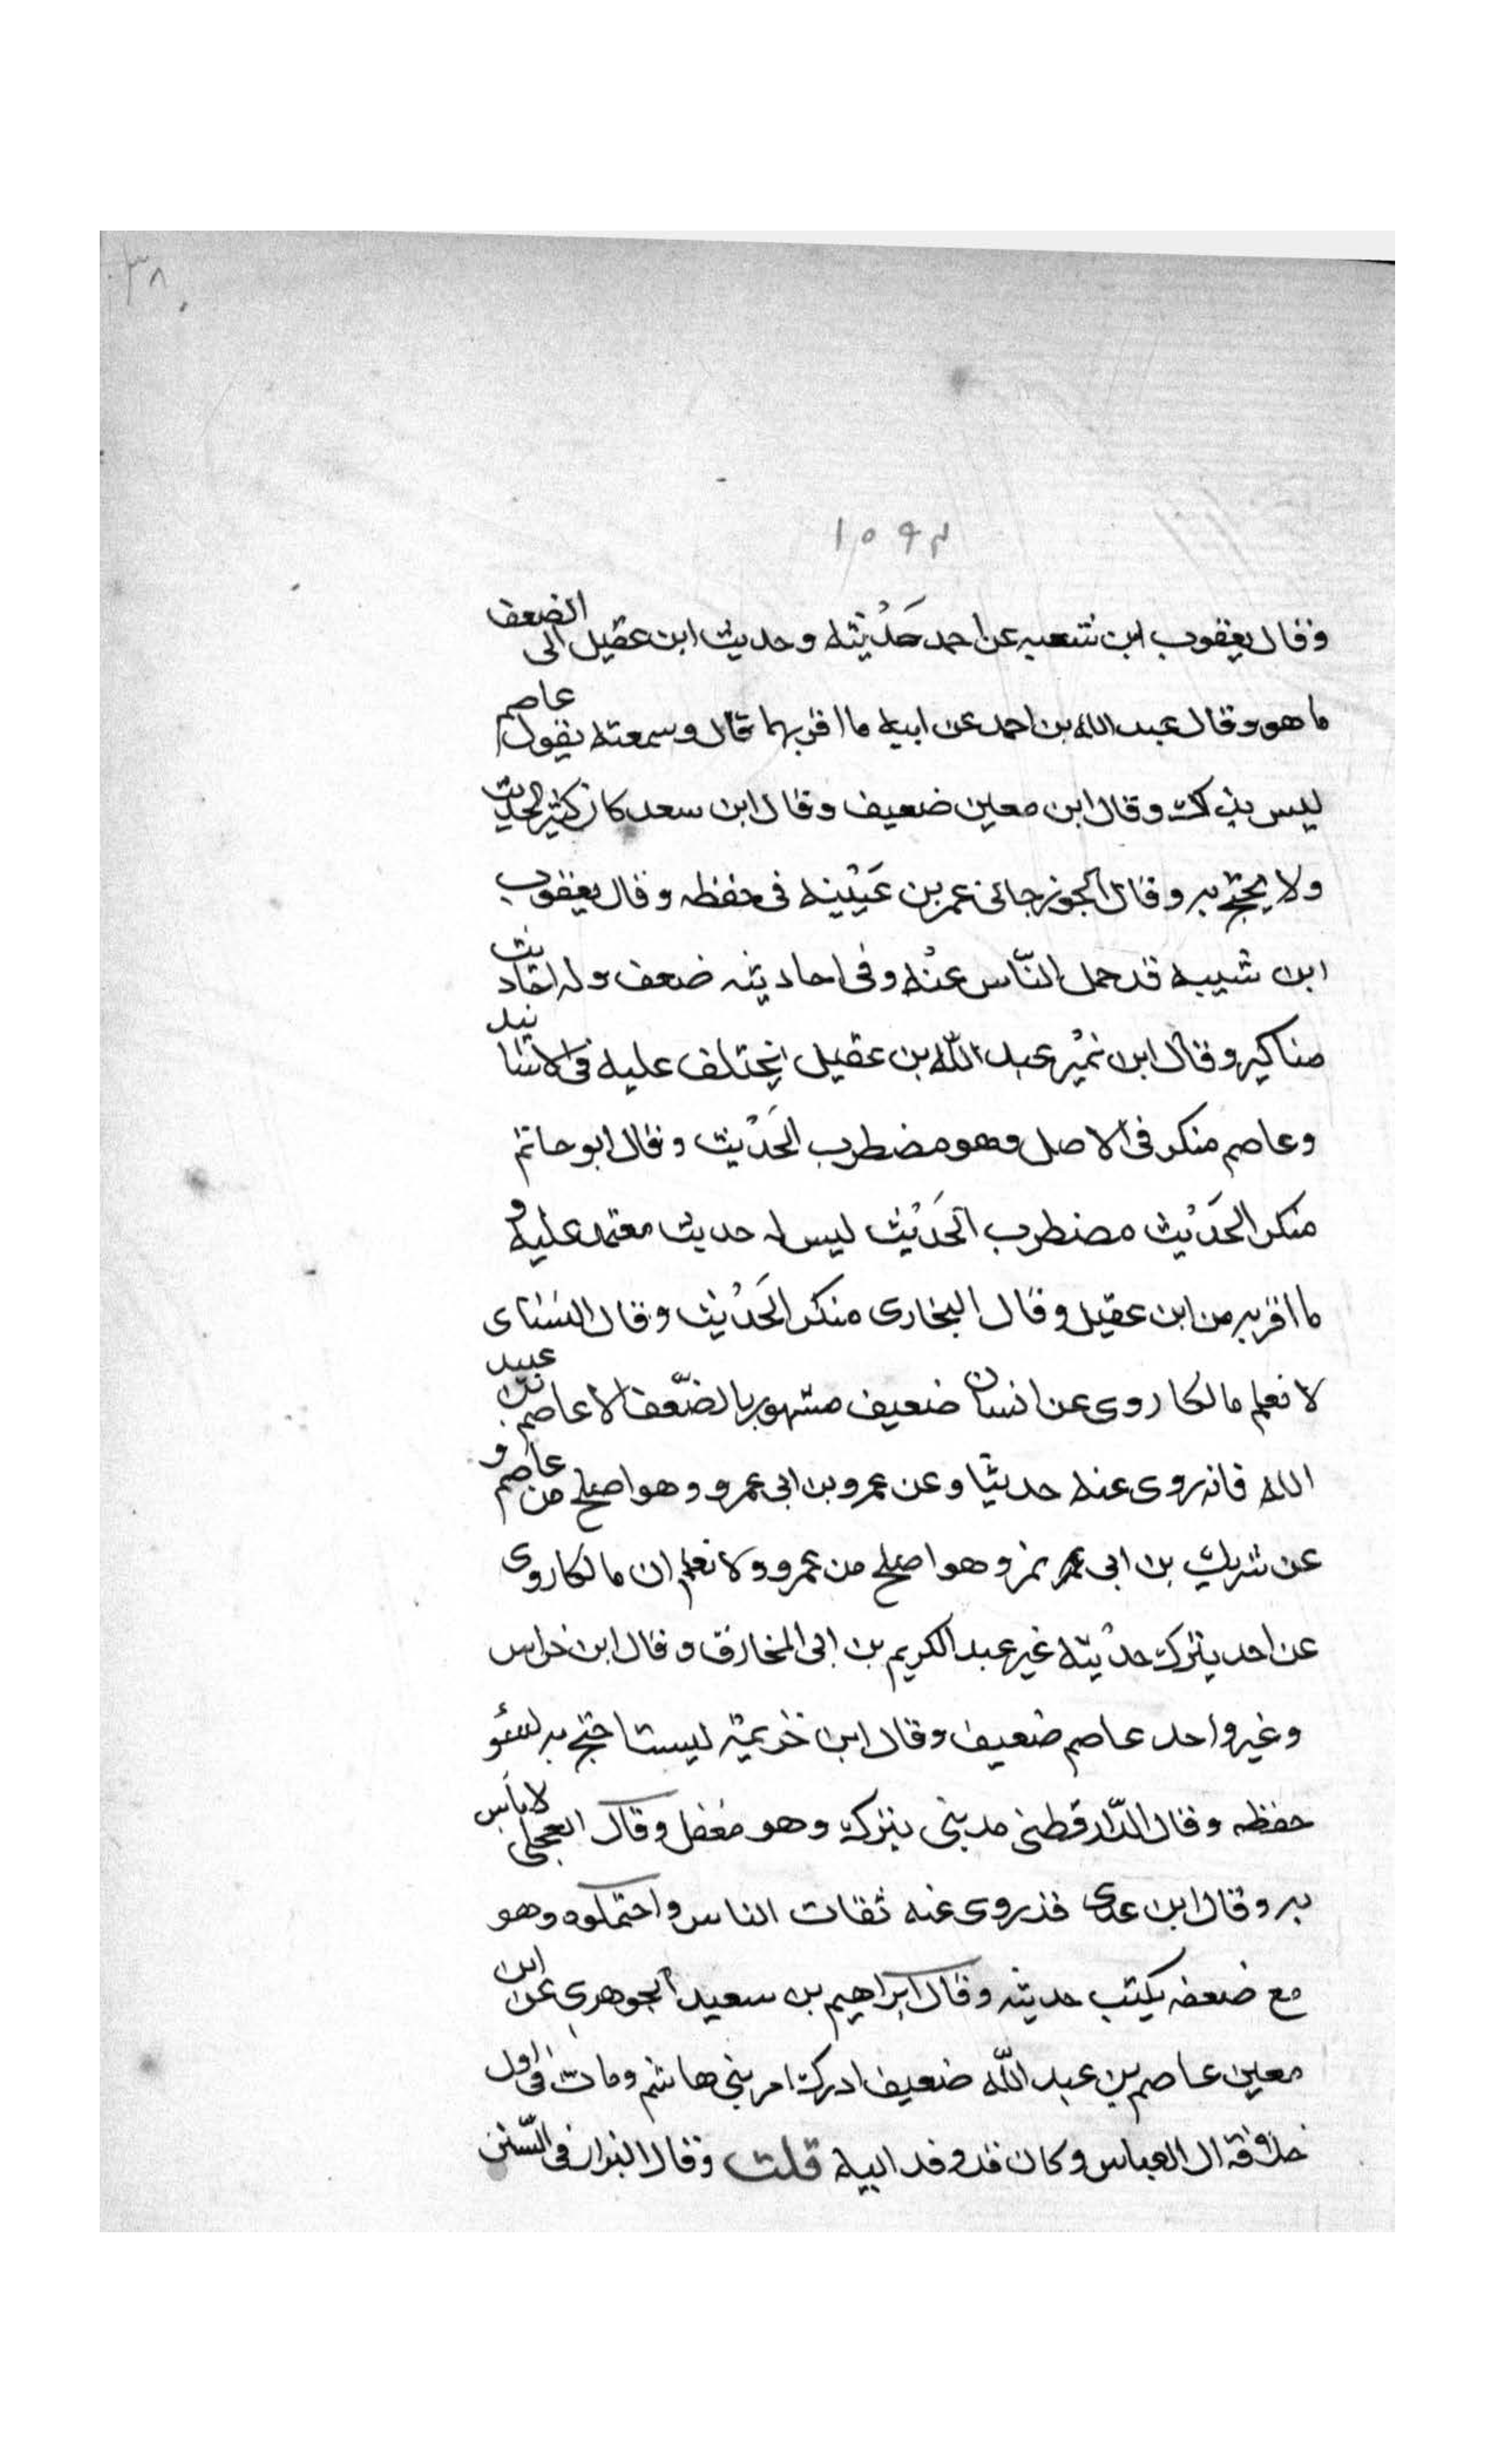 ٣٨
١٥٩٢
وقال يعقوب ابن شعبه عن احمد حَدْيثه وحديث ابن عقيل الى الضعف
ما هو وقال عبد الله بن احمد عن ابيه ما اقربهما قال وسمعته يقول عاصم
ليس بذاك وقال ابن معين ضعيف وقال ابن سعد كان كثير الحديث
ولا يحتج به وقال الجوزجانى عمر بن عَيْينه فى حفظه وقال يعقوب
ابن شيبه قد حمل النّاس عنْه وفى احاديثه ضعف وله احاديث
مناكير وقال ابن نميْر عبد اللّه بن عقيل يختلف عليه فى الاسانيد
وعاصم منكر فى الاصل وهو مضطرب الحَدْيث وقال ابو حاتم
منكر الحَدْيث مضطرب الحَدْيث ليس له حديث معتمد عليه و
ما اقربه من ابن عقيل وقال البخارى منكر الحَدْيث وقال النساى
لا نعلم مالكا روى عن انسان ضعيف مشهور بالضّعف الا عاصم بن عبيد
الله فانه روى عنه حديثا وعن عمرو بن ابى عمرو وهو اصلح من عاصم و
عن شريك بن ابى نمر وهو اصلح من عمرو ولا نعلم ان مالكا روى
عن احد يترك حديثه غير عبد الكريم بن ابى المخارق وقال ابن خراس
وغير واحد عاصم ضعيف وقال ابن خزيمة ليست احتج به لسئو
حفظه وقال الدّارقطنى مدينى يترك وهو مغفل وقال العجلى لا بأس
به وقال ابن عدى قد روى عنه ثقات الناس واحتملوه وهو
مع ضعفه يكتب حديثه وقال ابراهيم بن سعيد الجوهرى عن ابن
معين عاصم بن عبد اللّه ضعيف ادرك امر بنى هاشم ومات فى اول
خلافة ال العباس وكان قد وفد اليه قلت وقال البزار فى السّنن